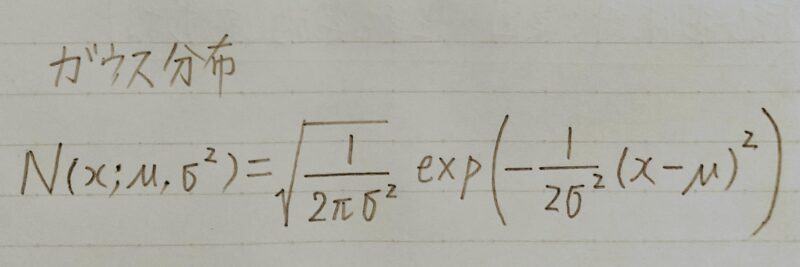 ガウス分布
N(x;μ,σ²)=√(1/(2πσ²)) exp(-1/(2σ²)(x-μ)²)